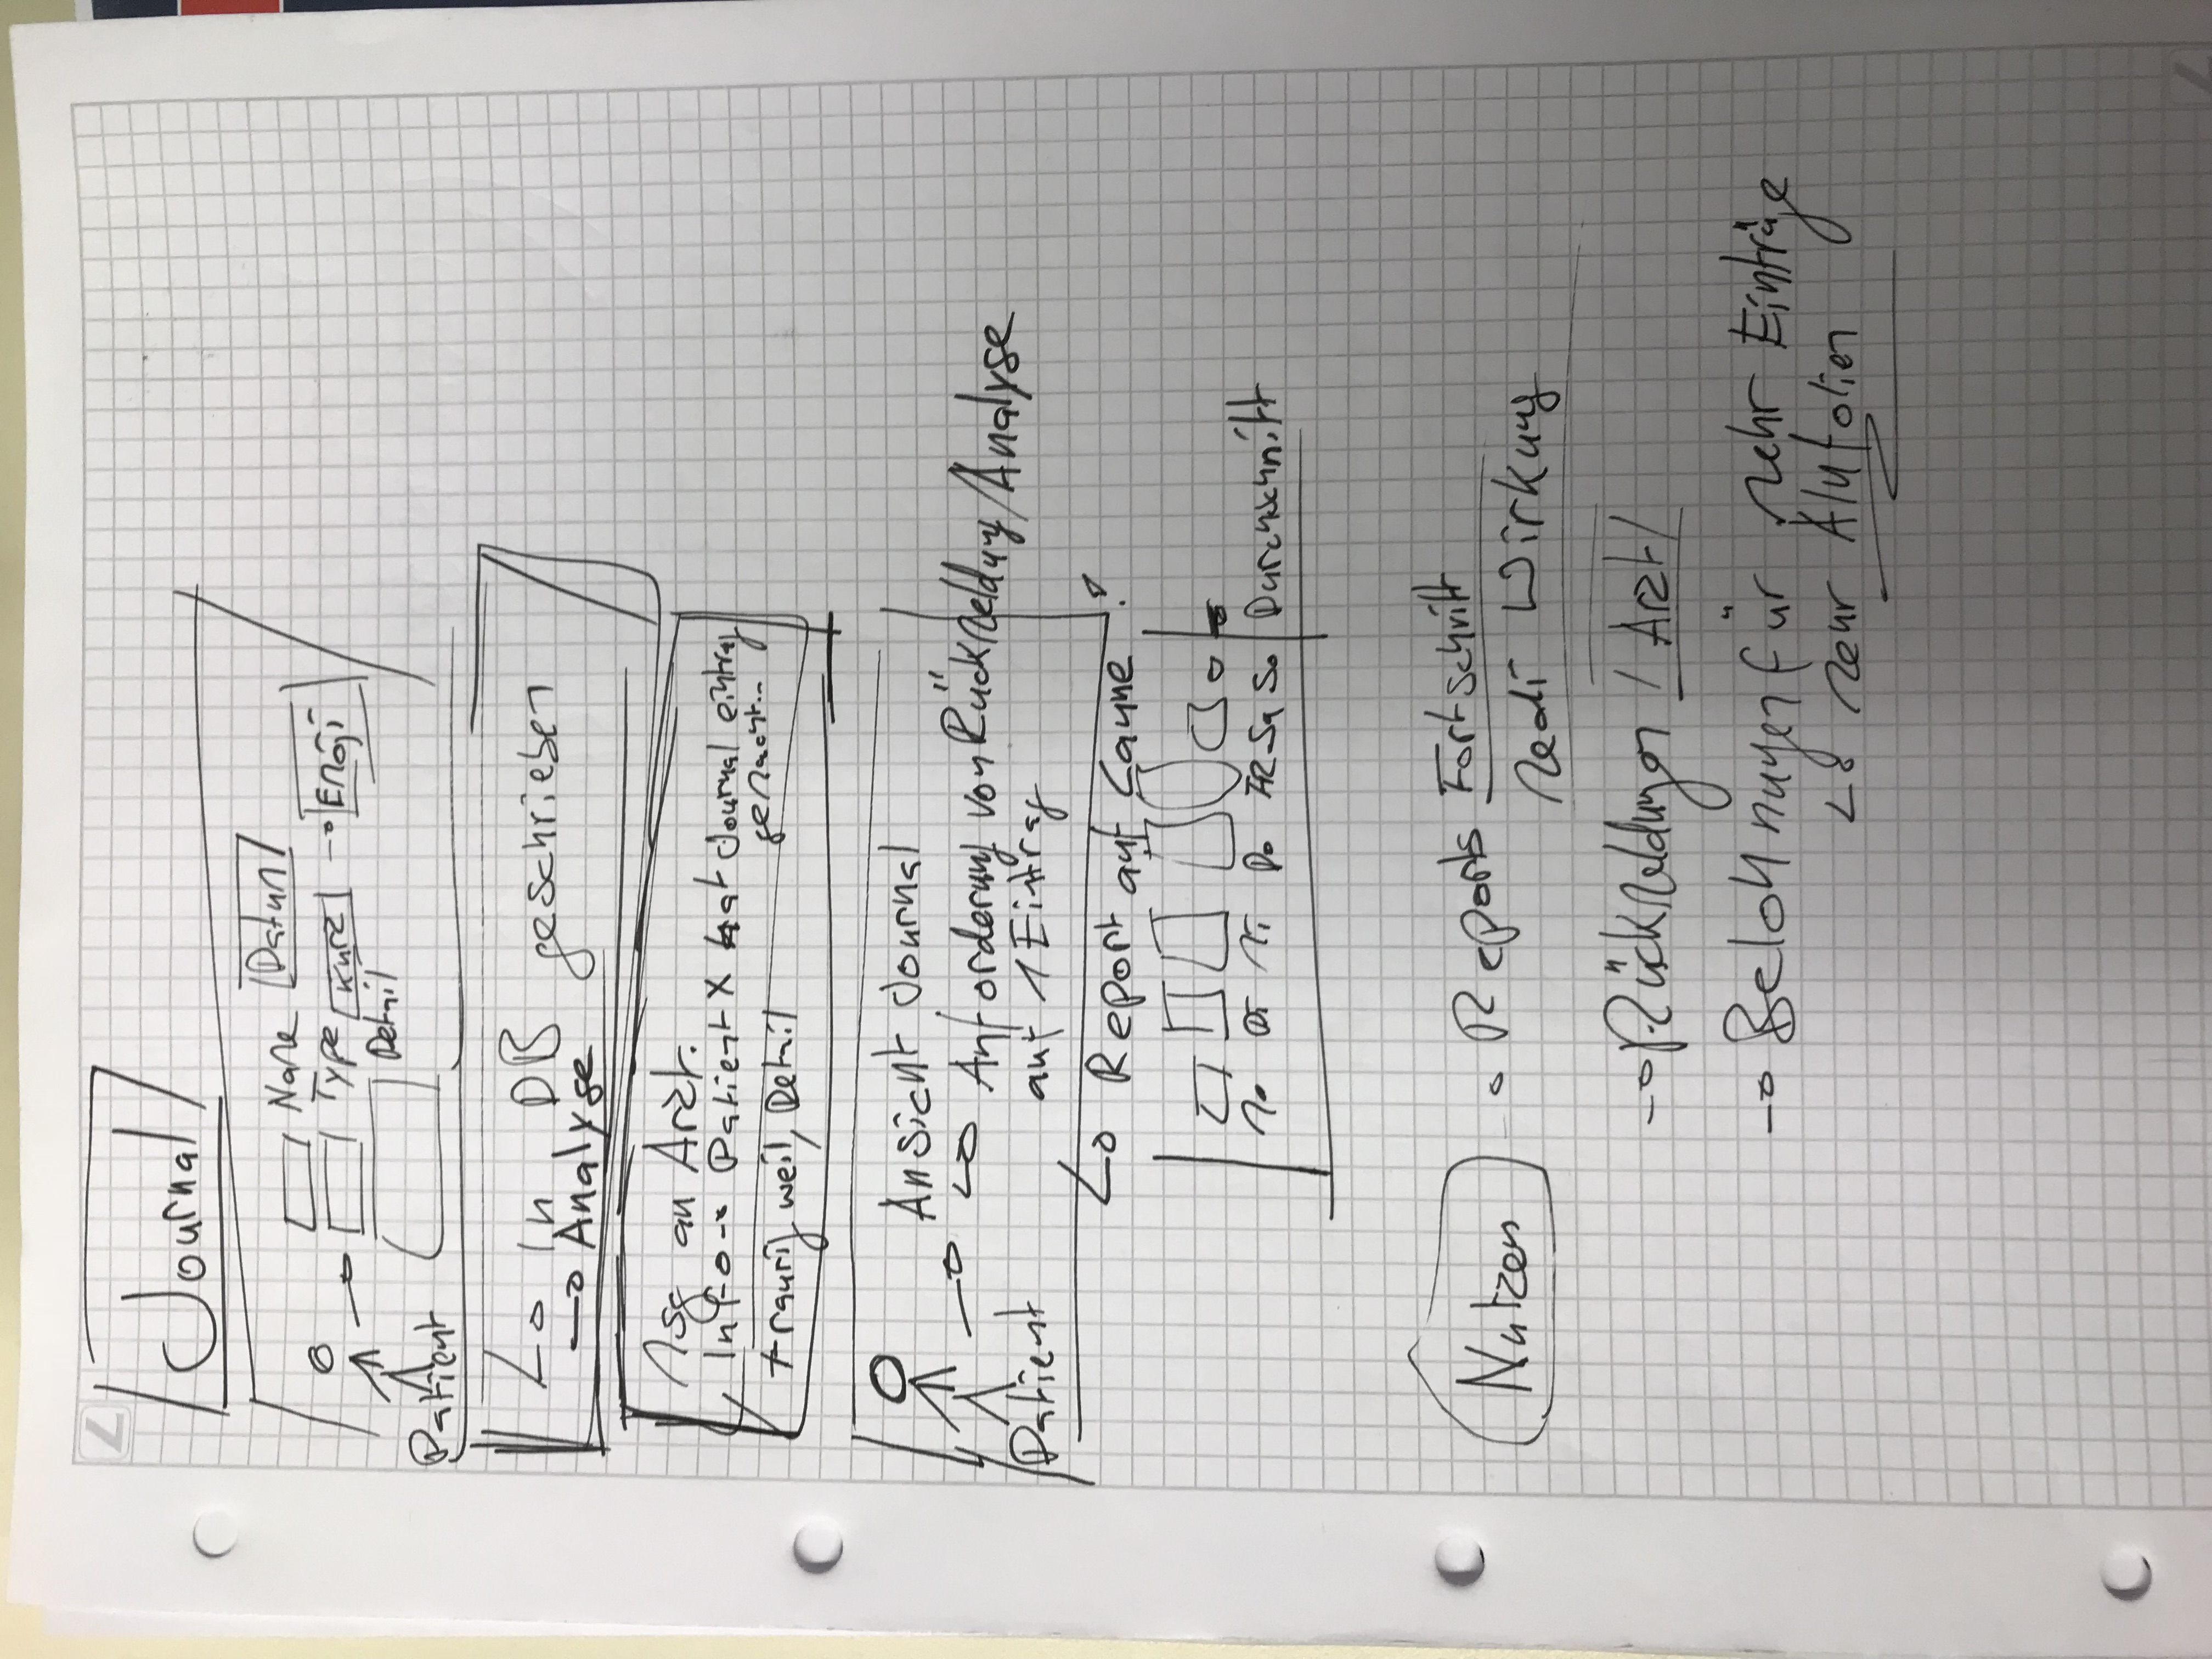 Journal
Name Datum
Type Kurz → Emoji
Detail
Patient
↳ In DB geschrieben
→ Analyse
Msg an Arzt:
Info → Patient X hat Journal eintrag
gemacht...
traurig weil, Detail
Ansicht Journal
→ ↳ Anforderung von Rückmeldung/Analyse
auf 1 Eintrag
Patient
↳ Report auf Laune!
Mo Di Mi Do Fr Sa So Durchschnitt
Nutzen
→ Reports Fortschritt
Medi Wirkung
→ Rückmeldungen / Arzt /
→ Belohnungen für mehr Einträge
↳ mehr Alufolien